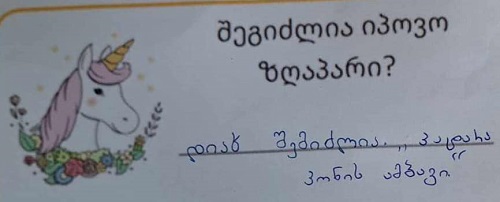 შეგიძლია იპოვო
ზღაპარი?
დიახ შემიძლია. ,, პატარა
პონის ამბავი“